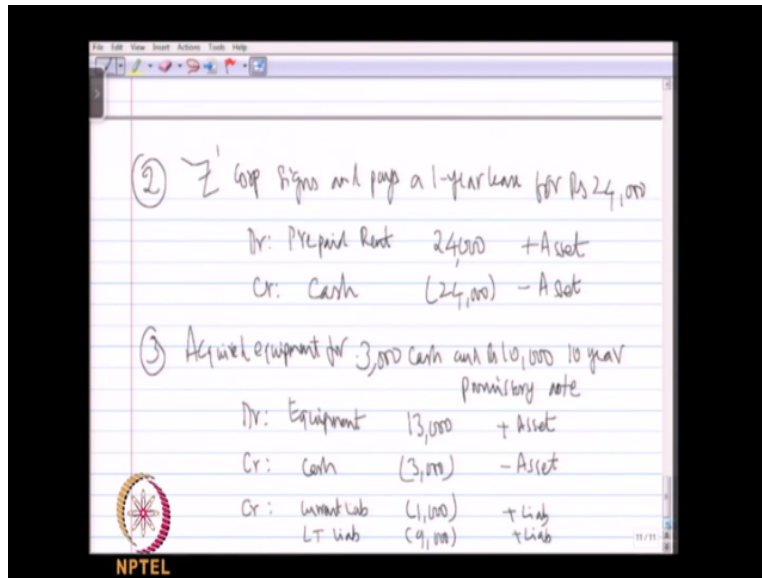 File Edit View Insert Actions Tools Help
② Z' Corp Signs and pays a 1-year lease for Rs 24,000
Dr: Prepaid Rent 24,000 + Asset
Cr: Cash (24,000) - Asset
③ Acquired equipment for 3,000 cash and a 10,000 10 year
promissory note
Dr: Equipment 13,000 + Asset
Cr: Cash (3,000) - Asset
Cr: Current Liab (1,000) + Liab
LT Liab (9,000) + Liab
11/11
NPTEL